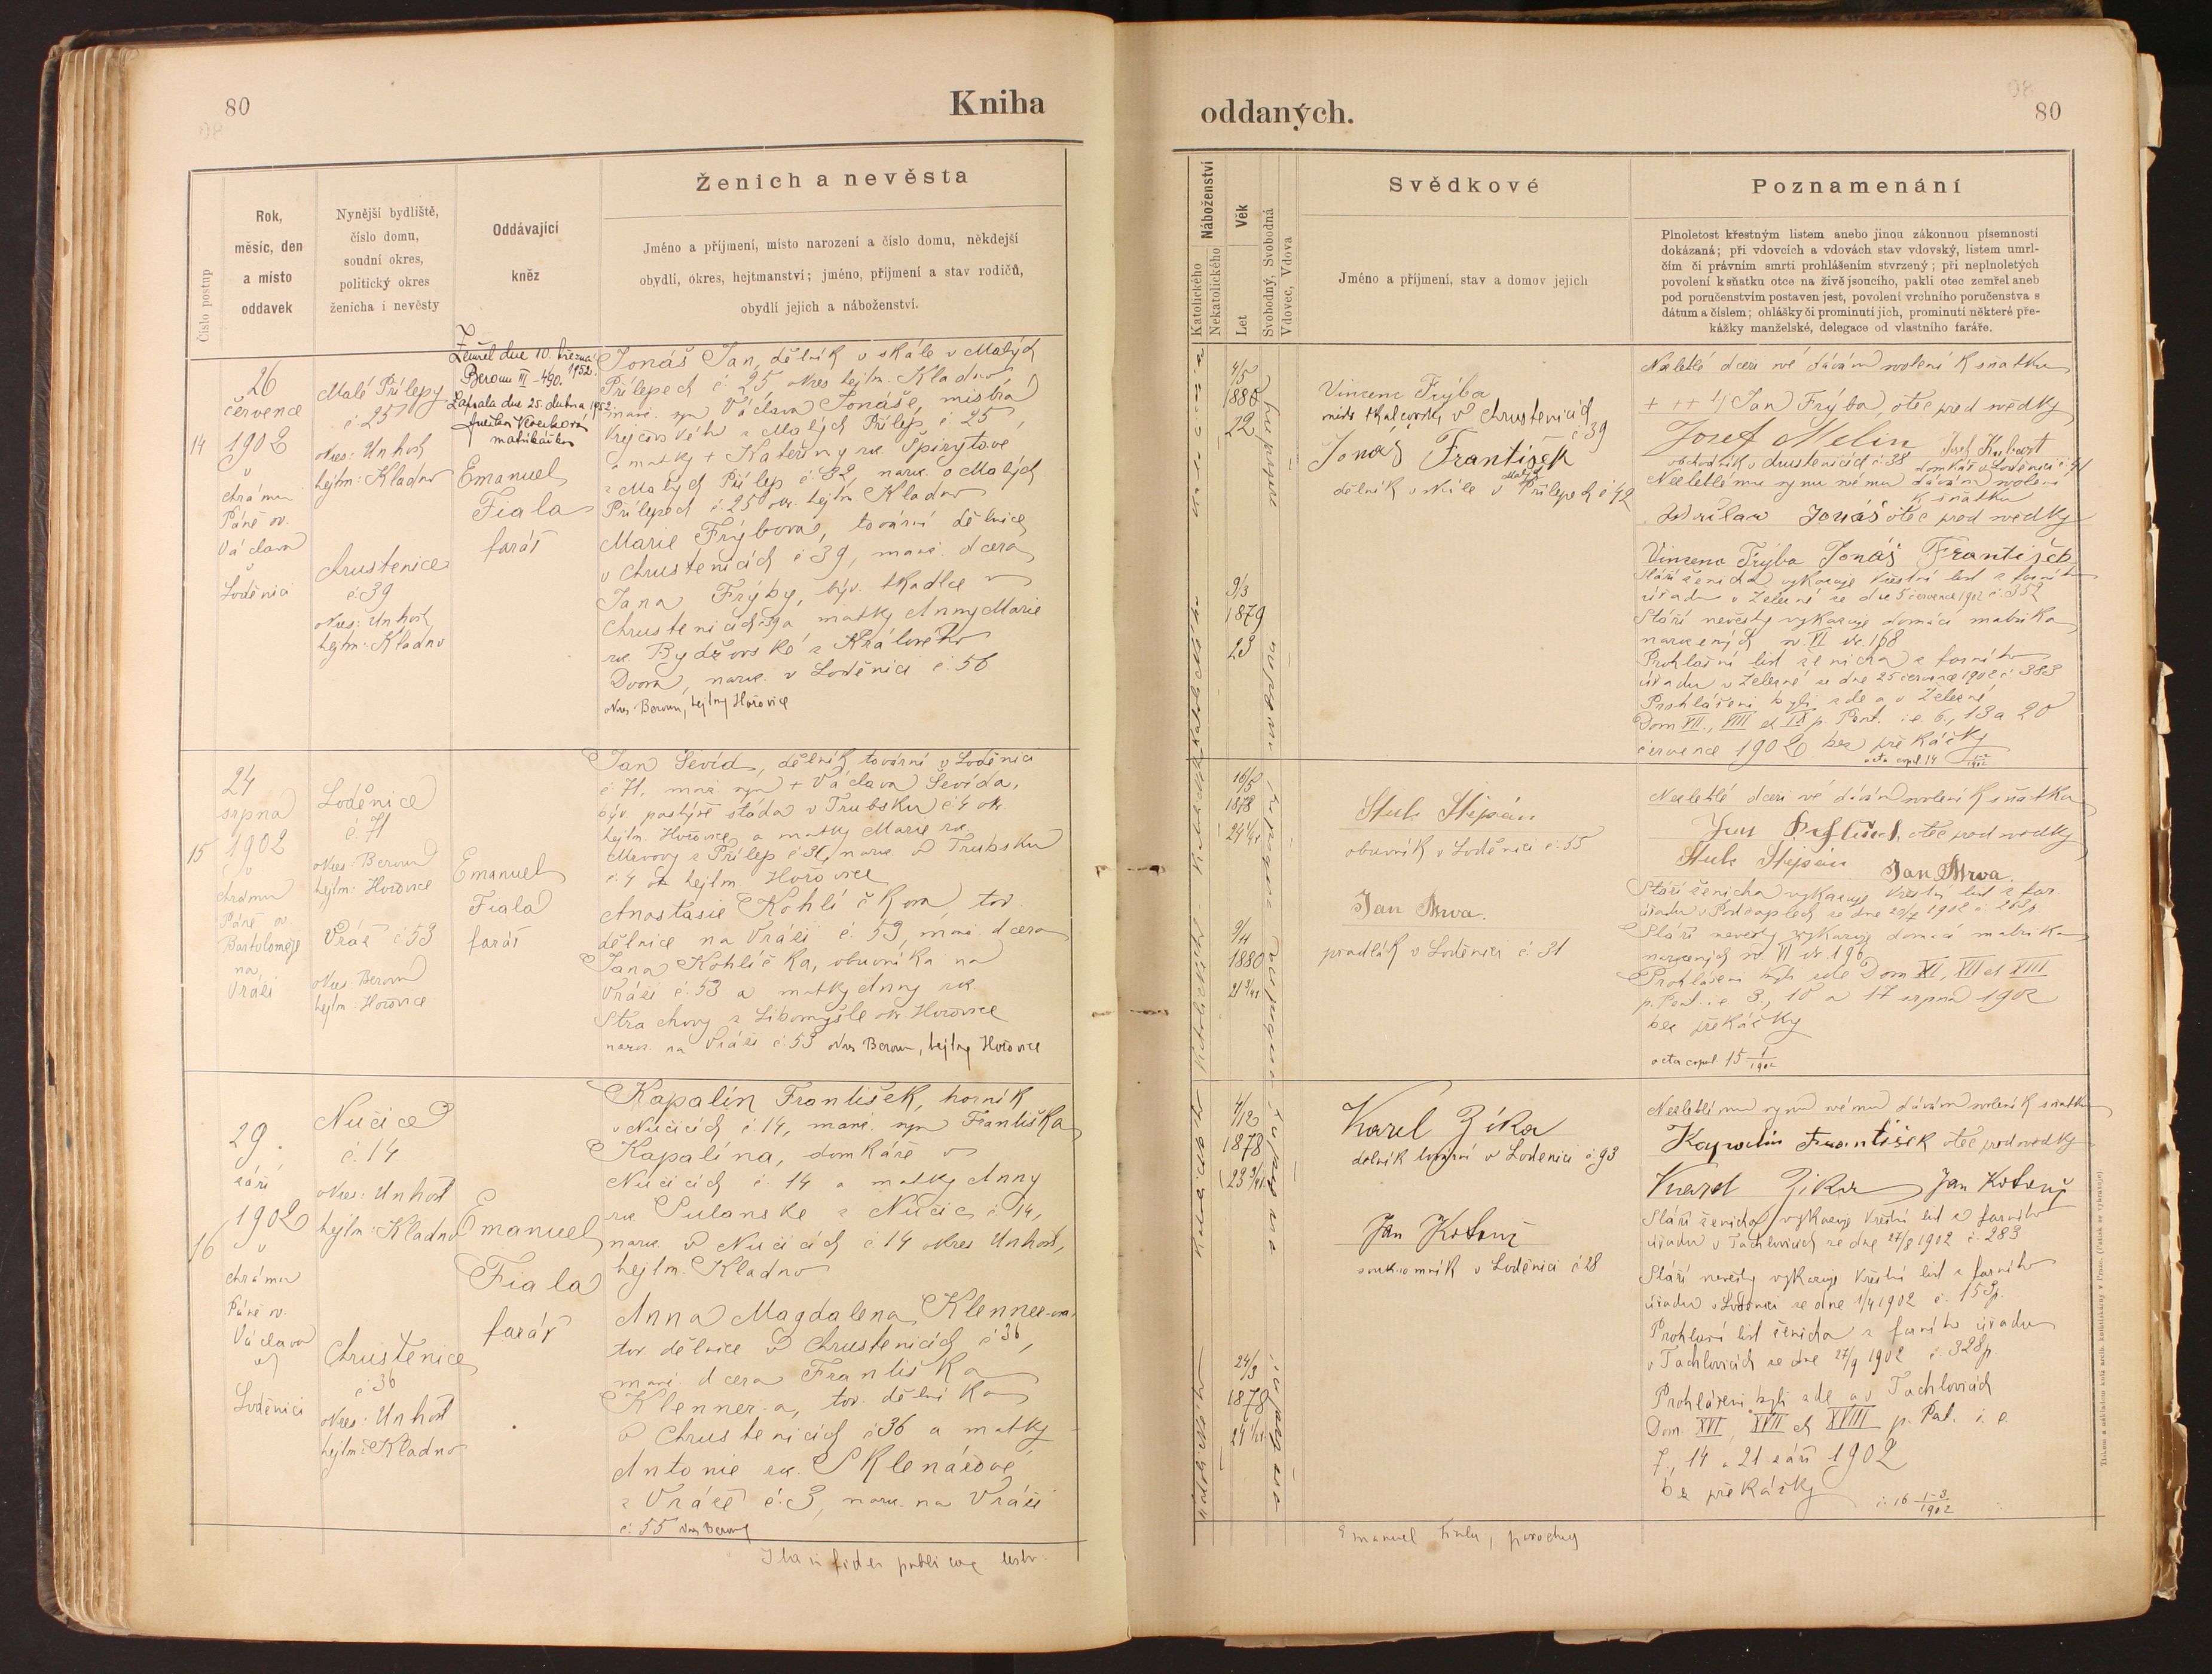 80
Kniha
Číslo postup
Rok,
měsíc, den
a místo
oddavek
Nynější bydliště,
číslo domu,
soudní okres,
politický okres
ženicha i nevěsty
Oddávající
kněz
Ženich a nevěsta
Jméno a příjmení, místo narození a číslo domu, někdejší
obydlí, okres, hejtmanství; jméno, příjmení a stav rodičů,
obydlí jejich a náboženství.
14
26
července
1902
v
chrámu
Páně sv.
Václava
v
Loděnici
Malé Přílepy
č 25
okres: Unhošť
hejtm: Kladno
Chrustenice
č. 39
okres: Unhošť
hejtm: Kladno
Zemřel dne 10. března
1952.
Beroun III - 490.
Zapsala dne 25. dubna 1952
matrikářka
Emanuel
Fiala
farář
Jonáš Jan, dělník v skále v Malých
Přílepech č. 25, okres hejtm. Kladno
manž. syn Václava Jonáše, mistra
krejčovského z Malých Přílep č. 25,
a matky + Kateřiny roz. Špirytove
z Malých Přílep č. 32, naroz. v Malých
Přílepech č. 25 okr. hejtm. Kladno
Marie Frýbova, tovární dělnice
v Chrustenicích č 39, manž. dcera
Jana Frýby, býv. tkadlce v
Chrustenicích 39 a matky Anny Marie
roz. Bydžovské z Králového
Dvora, naroz. v Loděnici č. 56
okres Beroun, hejtm Hořovice
15
24
srpna
1902
v
chrámu
Páně sv.
Bartoloměje
na
Vráži
Loděnice
č. 71
okres: Beroun
hejtm: Hořovice
Vráž č 53
okres: Beroun
hejtm: Hořovice
Emanuel
Fiala
farář
Jan Sevíd, dělník tovární v Loděnici
č. 71, manž. syn + Václava Sevída,
býv. pastýře stáda v Trubsku č 4 okr.
hejtm. Hořovice a matky Marie roz.
z Přílep č 31, naroz. v Trubsku
č. 4 okr hejtm. Hořovice
Anastasie Kohlíčkova, tov.
dělnice na Vráži č. 53, manž. dcera
Jana Kohlíčka, obuvníka na
Vráži č. 53 a matky Anny roz.
Strachovy z Libomyšle okr. Hořovice
naroz. na Vráži č. 53 okres Beroun, hejtm Hořovice
16
29.
září
1902
v
chrámu
Páně sv.
Václava
v
Loděnici
Nučice
č. 14
okres: Unhošť
hejtm: Kladno
Chrustenice
č 36
okres: Unhošť
hejtm: Kladno
Emanuel
Fiala
farář
Kapalín František, horník
v Nučicích č. 14, manž. syn Františka
Kapalína, domkáře v
Nučicích č. 14 a matky Anny
roz. Sulanske z Nučic č 14,
naroz. v Nučicích č 14 okres Unhošť,
hejtm. Kladno
Anna Magdalena Klenner-ova,
tov dělnice v Chrustenicích č 36,
manž. dcera Františka
Klenner-a, tov. dělníka
v Chrustenicích č 36 a matky
Antonie roz. Sklenářové
z Vráže č. 3, naroz. na Vráži
č. 55 okres Beroun
Ita in fidem publicae
oddaných.
80
Náboženství
Katolického
Nekatolického
Věk
Let
Svobodný, Svobodná
Vdovec, Vdova
Svědkové
Jméno a příjmení, stav a domov jejich
Poznamenání
Plnoletost křestným listem anebo jinou zákonnou písemností
dokázaná; při vdovcích a vdovách stav vdovský, listem umrl-
čím či právním smrti prohlášením stvrzený; při neplnoletých
povolení k sňatku otce na živě jsoucího, pakli otec zemřel aneb
pod poručenstvím postaven jest, povolení vrchního poručenstva s
dátum a číslem; ohlášky či prominutí jich, prominutí některé pře-
kážky manželské, delegace od vlastního faráře.
4/5
1880
22
9/3
1879
23
Vincenc Frýba
mistr tkalcovský v Chrustenicích
č 39
Jonáš František
dělník v skále v Malých Přílepech č 42
Nezletilé dceři své dávám svolení k sňatku
+ ++ 1) Jan Frýba, otec před svědky
Josef Melin Josef Kubart
obchodník v Chrustenicích č 38 domkář v Loděnici č 41
Nezletilému synu svému dávám svolení
k sňatku
Jonáš otec před svědky
Vincenc Frýba Jonáš František
Stáří ženicha vykazuje křestní list z farního
úřadu v Železné ze dne 5 července 1902 č. 352
Stáří nevěsty vykazuje domácí matrika
narozených sv. VI str. 168
Prohlašní list ženicha z farního
úřadu v Železné ze dne 25 července 1902 č 383
Prohlášeni byli zde a v Železné
Dom VII., VIII et IX p. Pent. i.e. 6., 13 a 20
července 1902 bez překážky
acta copul. 14 1/1902
16/5
1878
24 1/4
9/11
1880
21 3/4
Stuk Štěpán
obuvník v Loděnici č. 55
Jan Mrva.
pradlák v Loděnici č 31
Nezletilé dceři své dávám svolení k sňatku
otec před svědky
Stuk Štěpán Jan Mrva.
Stáří ženicha vykazuje křestní list z far.
úřadu v Počaplech ze dne 1902
Stáří nevěsty vykazuje domácí matrika
narozených sv. VI str. 196
Prohlášeni byli zde Dom XI, XII et XIII
p. Pent. i.e 3., 10 a 17 srpna 1902
bez překážky
acta copul 15 1/1902
4/12
1878
24/3
1878
Karel Zíka
dělník tovární v Loděnici č. 93
Jan Kotouč
soukromník v Loděnici č 28
Nezletilému synu svému dávám svolení k sňatku
Kapalín František otec před svědky
Karel Zíka Jan Kotouč
Stáří ženicha vykazuje křestní list z farního
úřadu v Tachlovicích ze dne 27/8 1902 č. 283
Stáří nevěsty vykazuje křestní list z farního
úřadu v Loděnici ze dne 1/4 1902 č. 153p.
Prohlašní list ženicha z farního úřadu
v Tachlovicích ze dne 27/9 1902 č. 328p.
Prohlášeni byli zde a v Tachlovicích
Dom. XVI, XVII et XVIII p. Pent. i. e.
7., 14 a 21 září 1902
bez překážky č. 16 1-3/1902
Emanuel Fiala, parochus